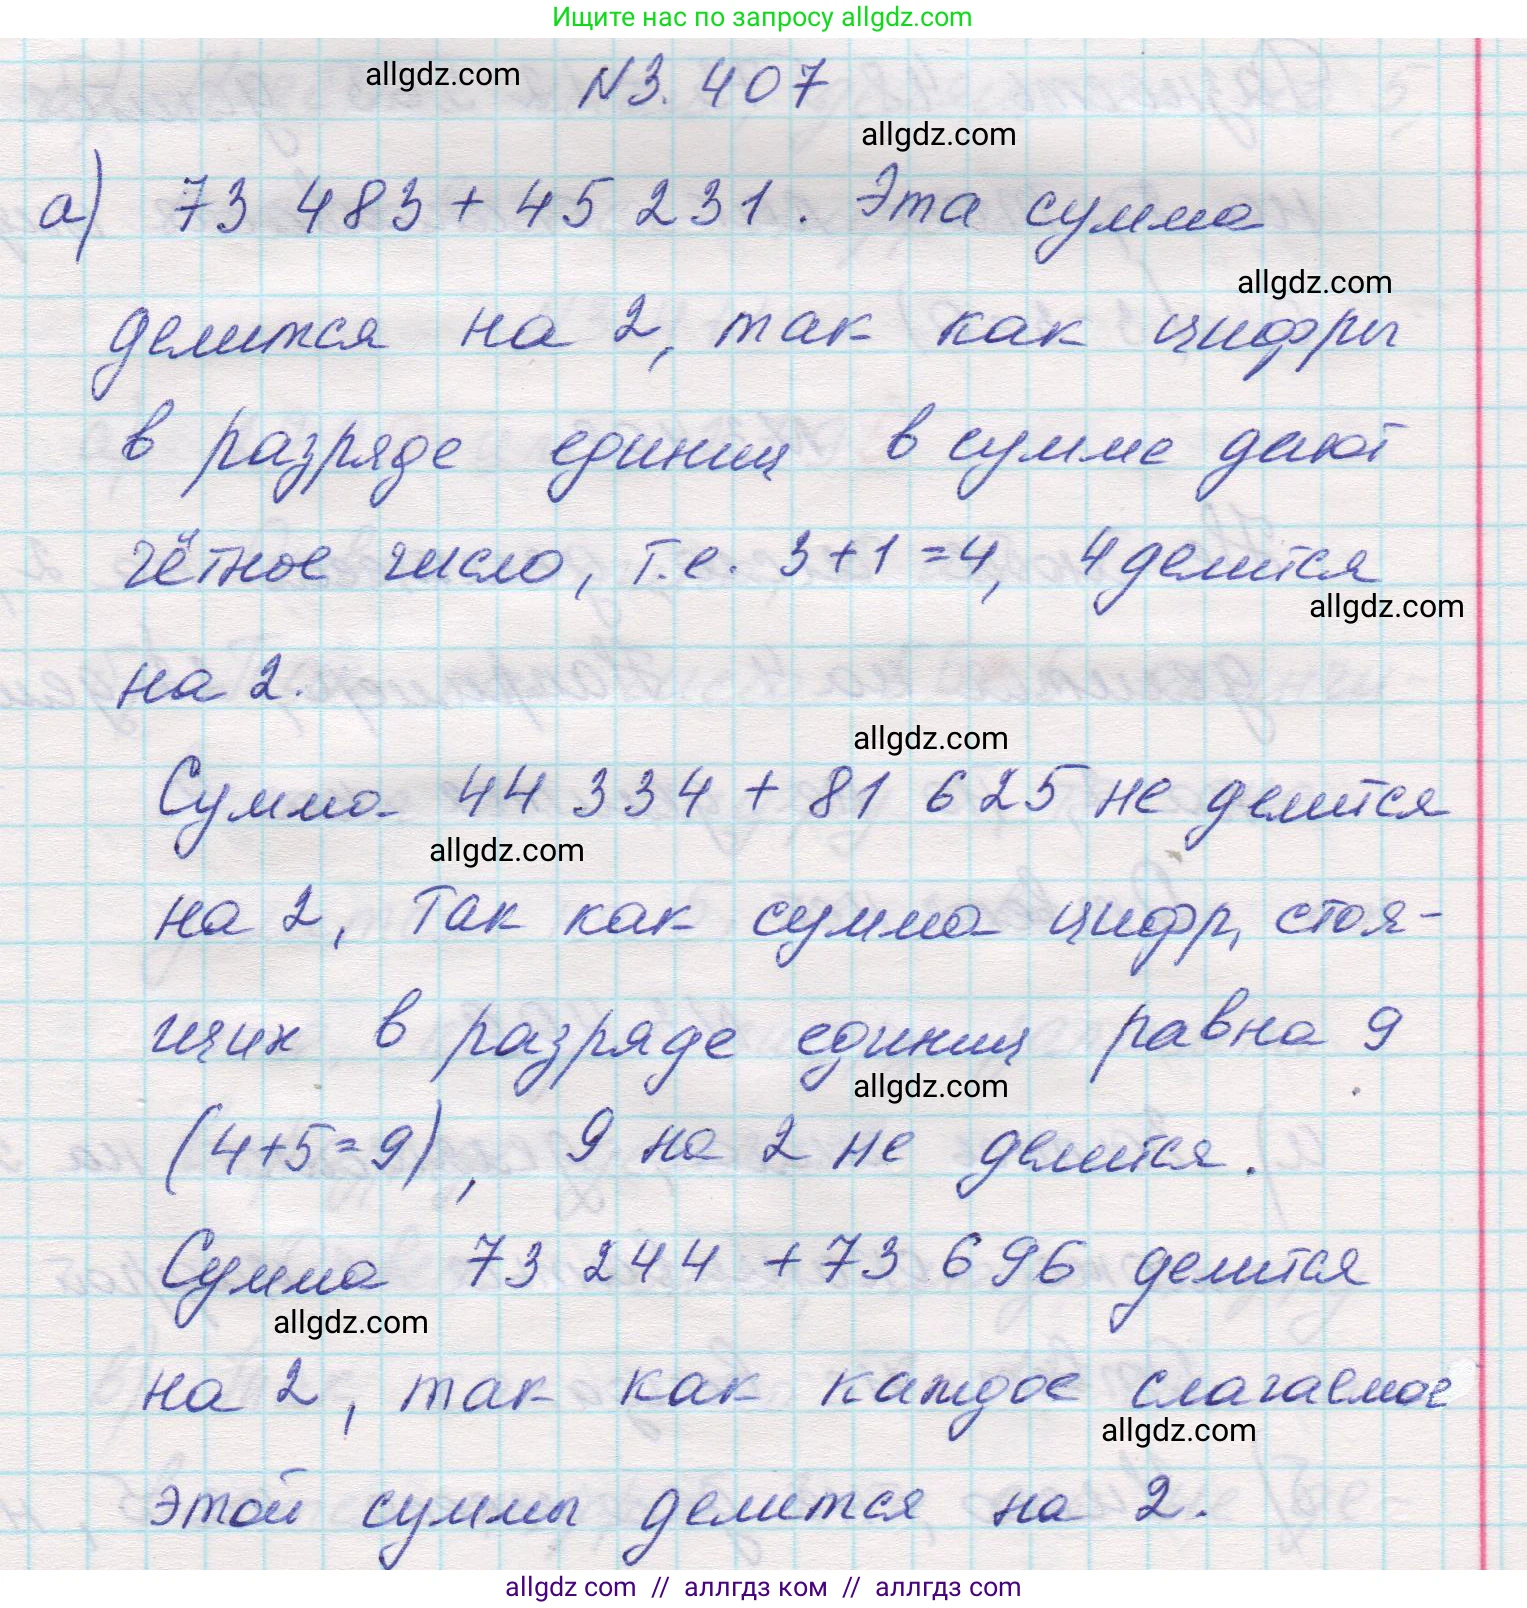 Ищите нас по запросу allgdz.com
allgdz.com
N3.407
allgdz.com
а) 73 483 + 45 231. Эта сумма
allgdz.com
делится на 2, так как цифры
в разряде единиц в сумме дают
чётное число, т.е. 3+1=4, 4 делится
allgdz.com
на 2.
allgdz.com
Сумма 44 334 + 81 625 не делится
allgdz.com
на 2, так как сумма цифр, стоя-
щих в разряде единиц равна 9
allgdz.com
(4+5=9), 9 на 2 не делится.
Сумма 73 244 + 73 696 делится
allgdz.com
на 2, так как каждое слагаемое
allgdz.com
этой суммы делится на 2.
allgdz com // аллгдз ком // аллгдз com